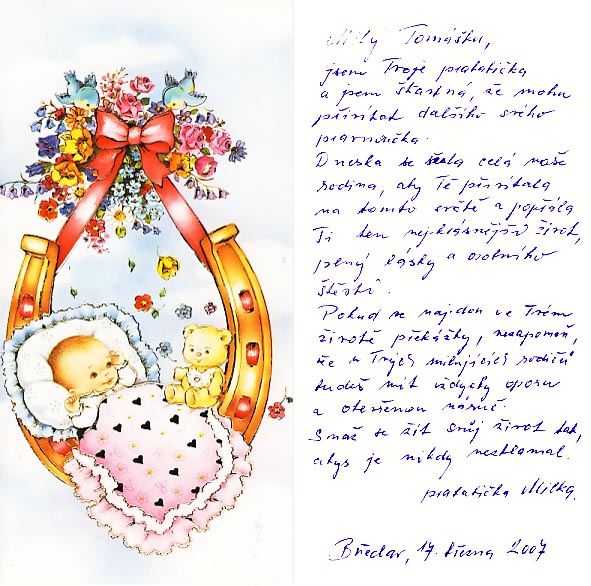 Milý Tomášku,
jsem Tvoje prababička
a jsem šťastná, že mohu
přivítat dalšího svého
pravnoučka.
Dneska se sešla celá naše
rodina, aby Tě přivítala
na tomto světě a popřála
Ti ten nejkrásnější život,
plný lásky a osobního
štěstí.
Pokud se najdou ve Tvém
životě překážky, nezapomeň,
že u Tvých milujících rodičů
budeš mít vždycky oporu
a otevřenou náruč.
Snaž se žít svůj život tak,
abys je nikdy nezklamal.
prababička Milka.
Břeclav, 17. března 2007